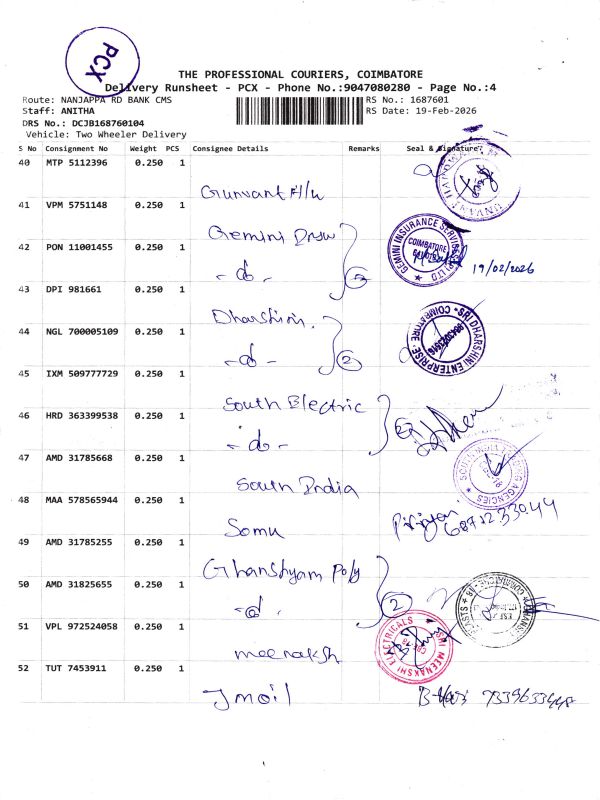 PCX
THE PROFESSIONAL COURIERS, COIMBATORE
Delivery Runsheet - PCX - Phone No.:9047080280 - Page No.:4
Route: NANJAPPA RD BANK CMS
RS No.: 1687601
Staff: ANITHA
RS Date: 19-Feb-2026
DRS No.: DCJB168760104
Vehicle: Two Wheeler Delivery
S No Consignment No Weight PCS Consignee Details Remarks Seal & Signature
40 MTP 5112396 0.250 1
Gunvant
41 VPM 5751148 0.250 1
Gemini
GEMINI INSURANCE SERVICES
COIMBATORE
42 PON 11001455 0.250 1
-do- 2
19/02/2026
43 DPI 981661 0.250 1
Dharshini.
SRI DHARSHINI ENTERPRISE
COIMBATORE
44 NGL 700005109 0.250 1
-do- 2
45 IXM 509777729 0.250 1
South Electric
46 HRD 363399538 0.250 1
-do-
47 AMD 31785668 0.250 1
South India
AGENCIES
48 MAA 578565944 0.250 1
Somu
49 AMD 31785255 0.250 1
Ghanshyam Poly
50 AMD 31825655 0.250 1
-do- 2
51 VPL 972524058 0.250 1
meenaksh
SRI MEENAKSHI ELECTRICALS
52 TUT 7453911 0.250 1